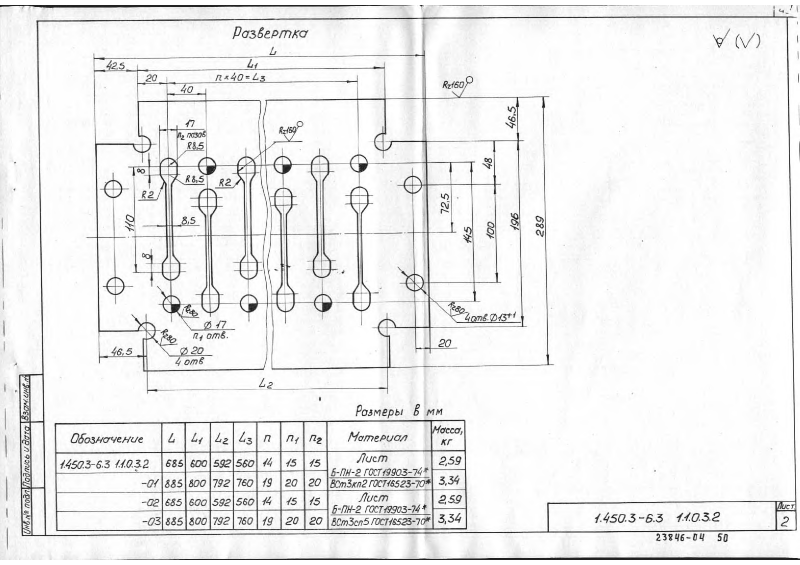 Развертка
L
42.5
L1
20
n×40=L3
40
Rz160
17
n2 пазов
R8,5
Rz160
46.5
48
8
R8,5
R2
R2
72,5
110
8,5
145
100
196
289
8
Rz80
Rz80
Ø17
n1 отв.
4 отв. Ø13+1
Rz80
46,5
Ø20
4 отв
20
L2
Размеры в мм
Обозначение L L1 L2 L3 n n1 n2 Материал Масса, кг
1.450.3-6.3 1.1.0.3.2 685 600 592 560 14 15 15 Лист 2,59
Б-ПН-2 ГОСТ19903-74*
-01 885 800 792 760 19 20 20 ВСт3кп2 ГОСТ16523-70* 3,34
-02 685 600 592 560 14 15 15 Лист 2,59
Б-ПН-2 ГОСТ19903-74*
-03 885 800 792 760 19 20 20 ВСт3сп5 ГОСТ16523-70* 3,34
Инв.№ подл. Подпись и дата Взам.инв.№
1.450.3-6.3 1.1.0.3.2
Лист
2
23846-04 50